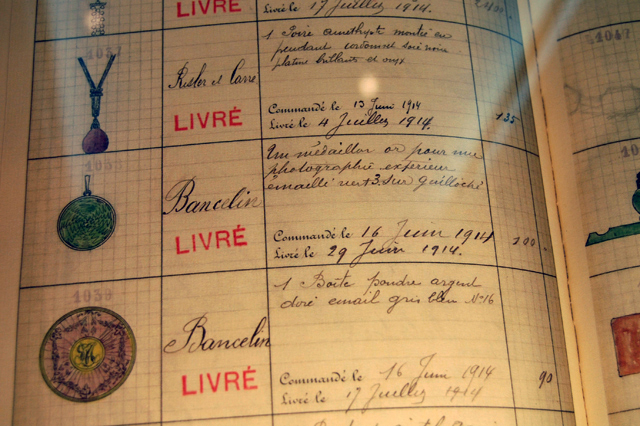 LIVRÉ
Livré le 17 Juillet 1914.
1 Poire améthyst monté en
pendant cordonnet soie noire
platine brillants et onyx
Risler et Carré
LIVRÉ
Commandé le 13 Juin 1914
Livré le 4 Juillet 1914.
135
Un médaillon or pour une
photographie extérieur
émaillé vert 3. sur guilloché
Bancelin
LIVRÉ
Commandé le 16 Juin 1914
Livré le 29 Juin 1914.
1 Boîte poudre argent
doré émail gris bleu No 16
Bancelin
LIVRÉ
Commandé le 16 Juin 1914
Livré le 17 Juillet 1914
90